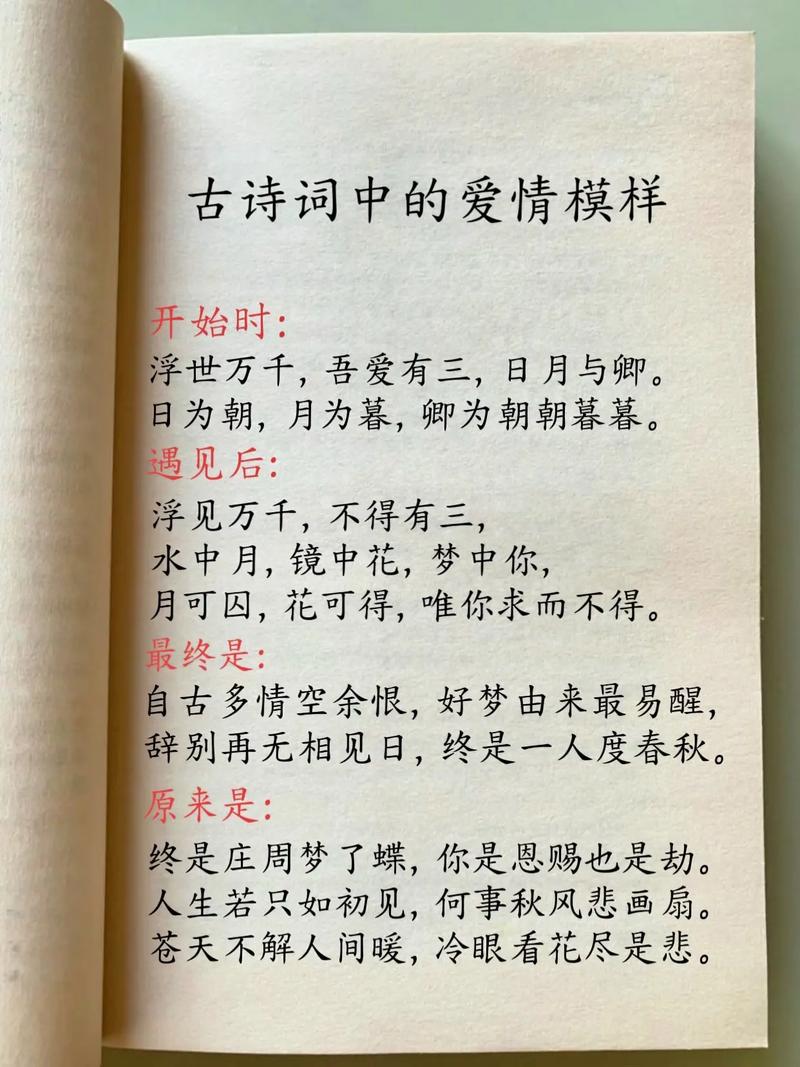 古诗词中的爱情模样
开始时:
浮世万千, 吾爱有三, 日月与卿。
日为朝, 月为暮, 卿为朝朝暮暮。
遇见后:
浮见万千, 不得有三,
水中月, 镜中花, 梦中你,
月可囚, 花可得, 唯你求而不得。
最终是:
自古多情空余恨, 好梦由来最易醒,
辞别再无相见日, 终是一人度春秋。
原来是:
终是庄周梦了蝶, 你是恩赐也是劫。
人生若只如初见, 何事秋风悲画扇。
苍天不解人间暖, 冷眼看花尽是悲。